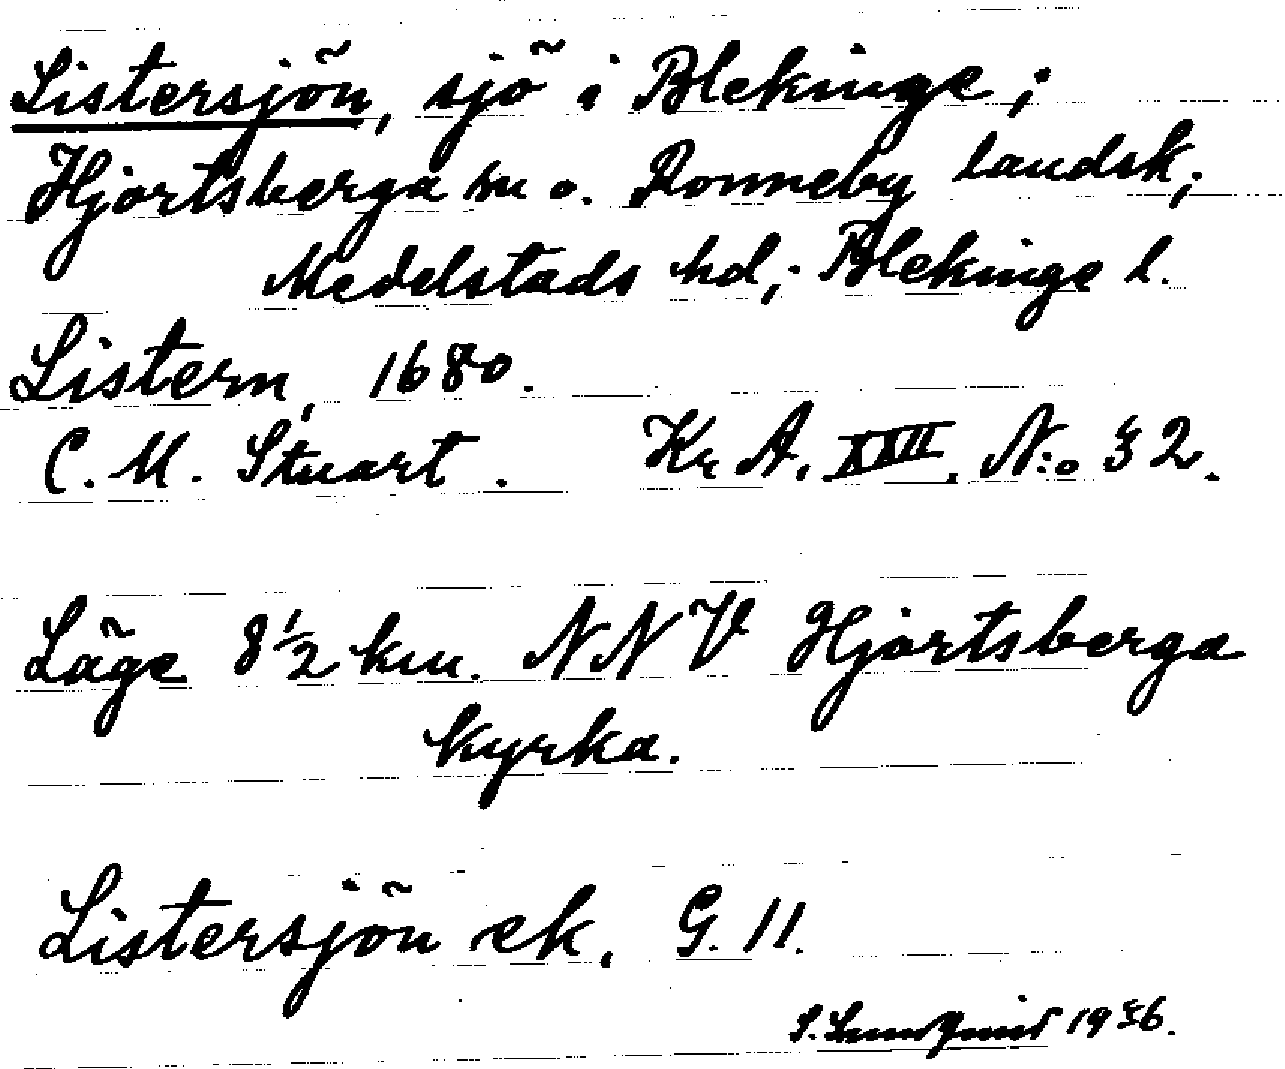 Listersjön, sjö i Blekinge;
Hjortsberga sn o. Ronneby landsk;
Medelstads hd; Blekinge l.
Listern, 1680.
C. M. Stuart. Kr A. XXII. N:o 32.
Läge 8 1/2 km. NNV Hjortsberga
kyrka.
Listersjön ek. G. 11.
S. 19